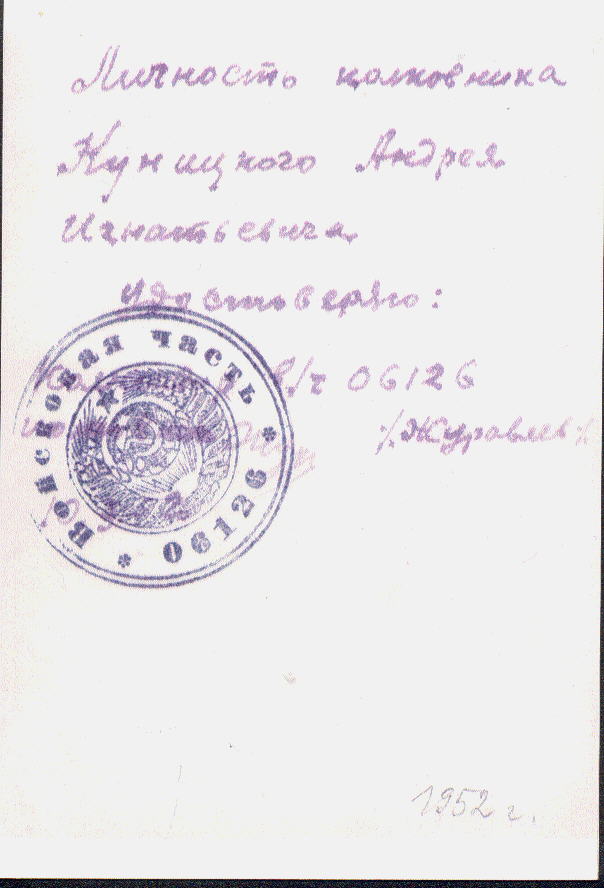 Личность полковника
Куницкого Андрея
Игнатьевича
удостоверяю:
в/ч 06126
/Журавлев/
Войсковая часть
* 06126 *
1952 г.